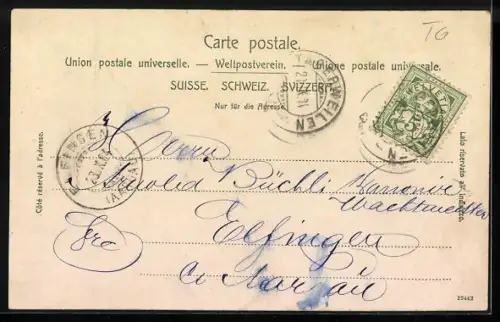 TG
Carte postale.
Union postale universelle. — Weltpostverein. — Unione postale universale.
SUISSE. SCHWEIZ. SVIZZERA.
Nur für die Adresse.
TÄGERWEILEN
HELVETIA
Côté réservé à l'adresse.
Lato riservato all' indirizzo.
FINGEN
(AARGAU)
Herrn
Arnold Büchli Kanonier
Wachtmeister
Elfingen
Ct Aargau
22443